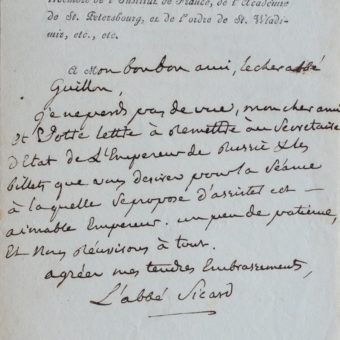 Membre de l'Institut de France, de l'Académie
de St. Pétersbourg, et de l'ordre de St. Wladi-
mir, etc., etc.
A mon bon bon ami, le cher abbé
Guillon,
je ne perds pas de vue, mon cher ami
et votre lettre à remettre au Secretaire
d'Etat de L'Empereur de Russie & les
billets que vous desirez pour la Séance
à laquelle se propose d'assister cet
aimable Empereur. un peu de patience,
Et nous réussirons à tout.
agréer mes tendres Embrassements,
L'abbé Sicard